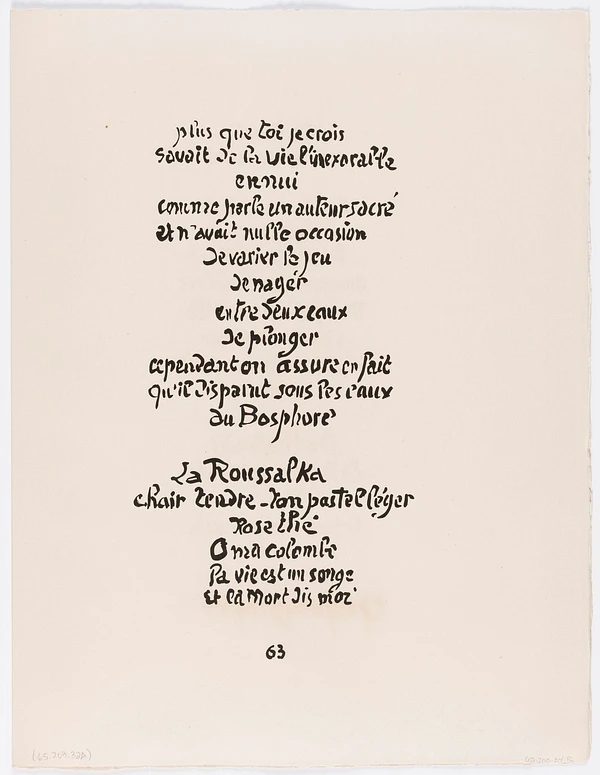 plus que toi je crois
savait de la vie l'inexorable
ennui
comme parle un auteur sacré
et n'avait nulle occasion
de varier le jeu
de nager
entre deux eaux
de plonger
cependant on assure en fait
qu'il disparut sous les eaux
du Bosphore
La Roussalka
chair tendre - ton pastel léger
Rose thé
O ma colombe
la vie est un songe
et la mort dis moi
63